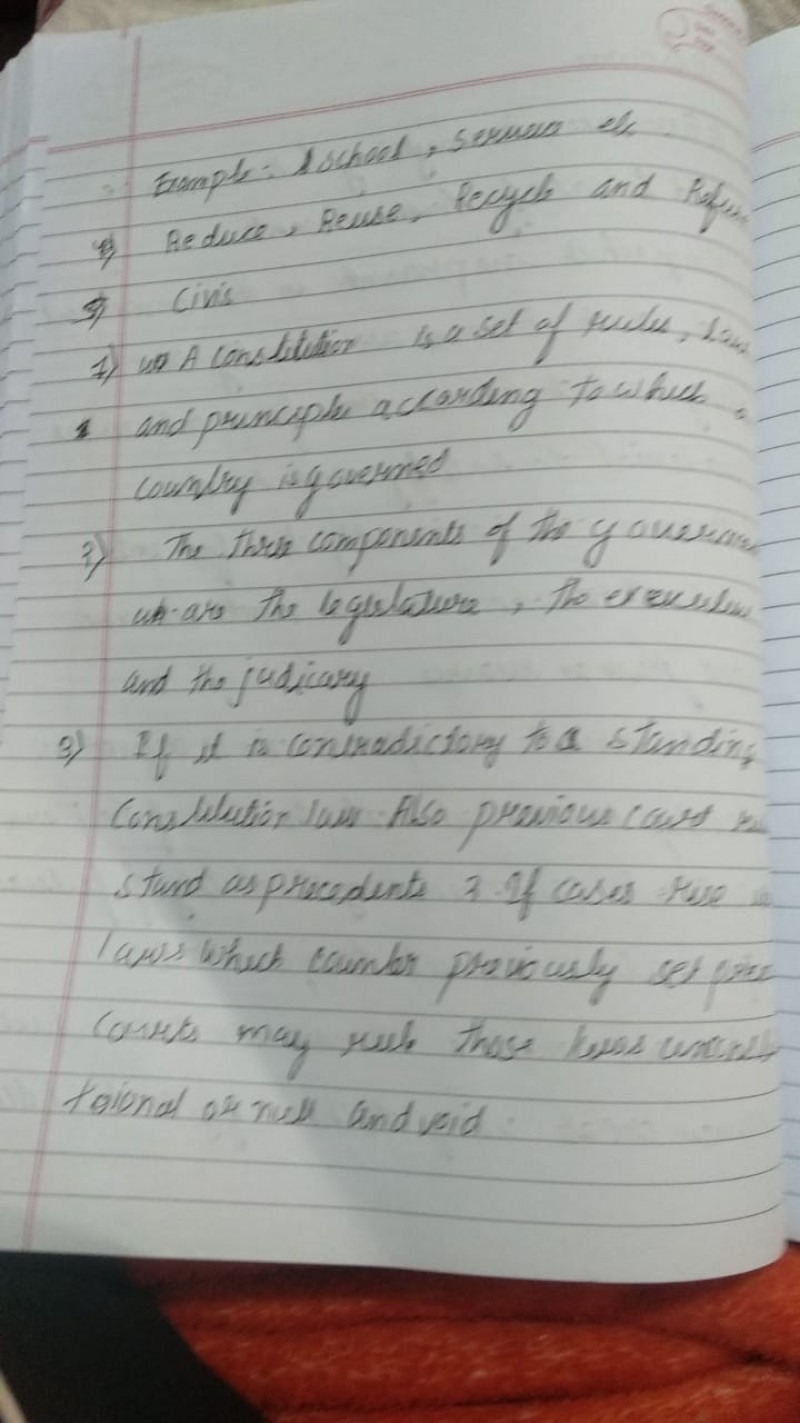 Example:- A school, serman etc
4) Reduce, Reuse, Recycle and Refuse
5) Civis
1) A constitution is a set of rules, law
and principle according to which a
country is governed
2) The three components of the governme
are the legislature, the executive
and the judicary
3) If it is contradictory to a standing
Constitution law Also previous
stand as precedents 2 If cases rise in
laws which counter previously set prec
Courts may rule those laws unconst
tional or null and void